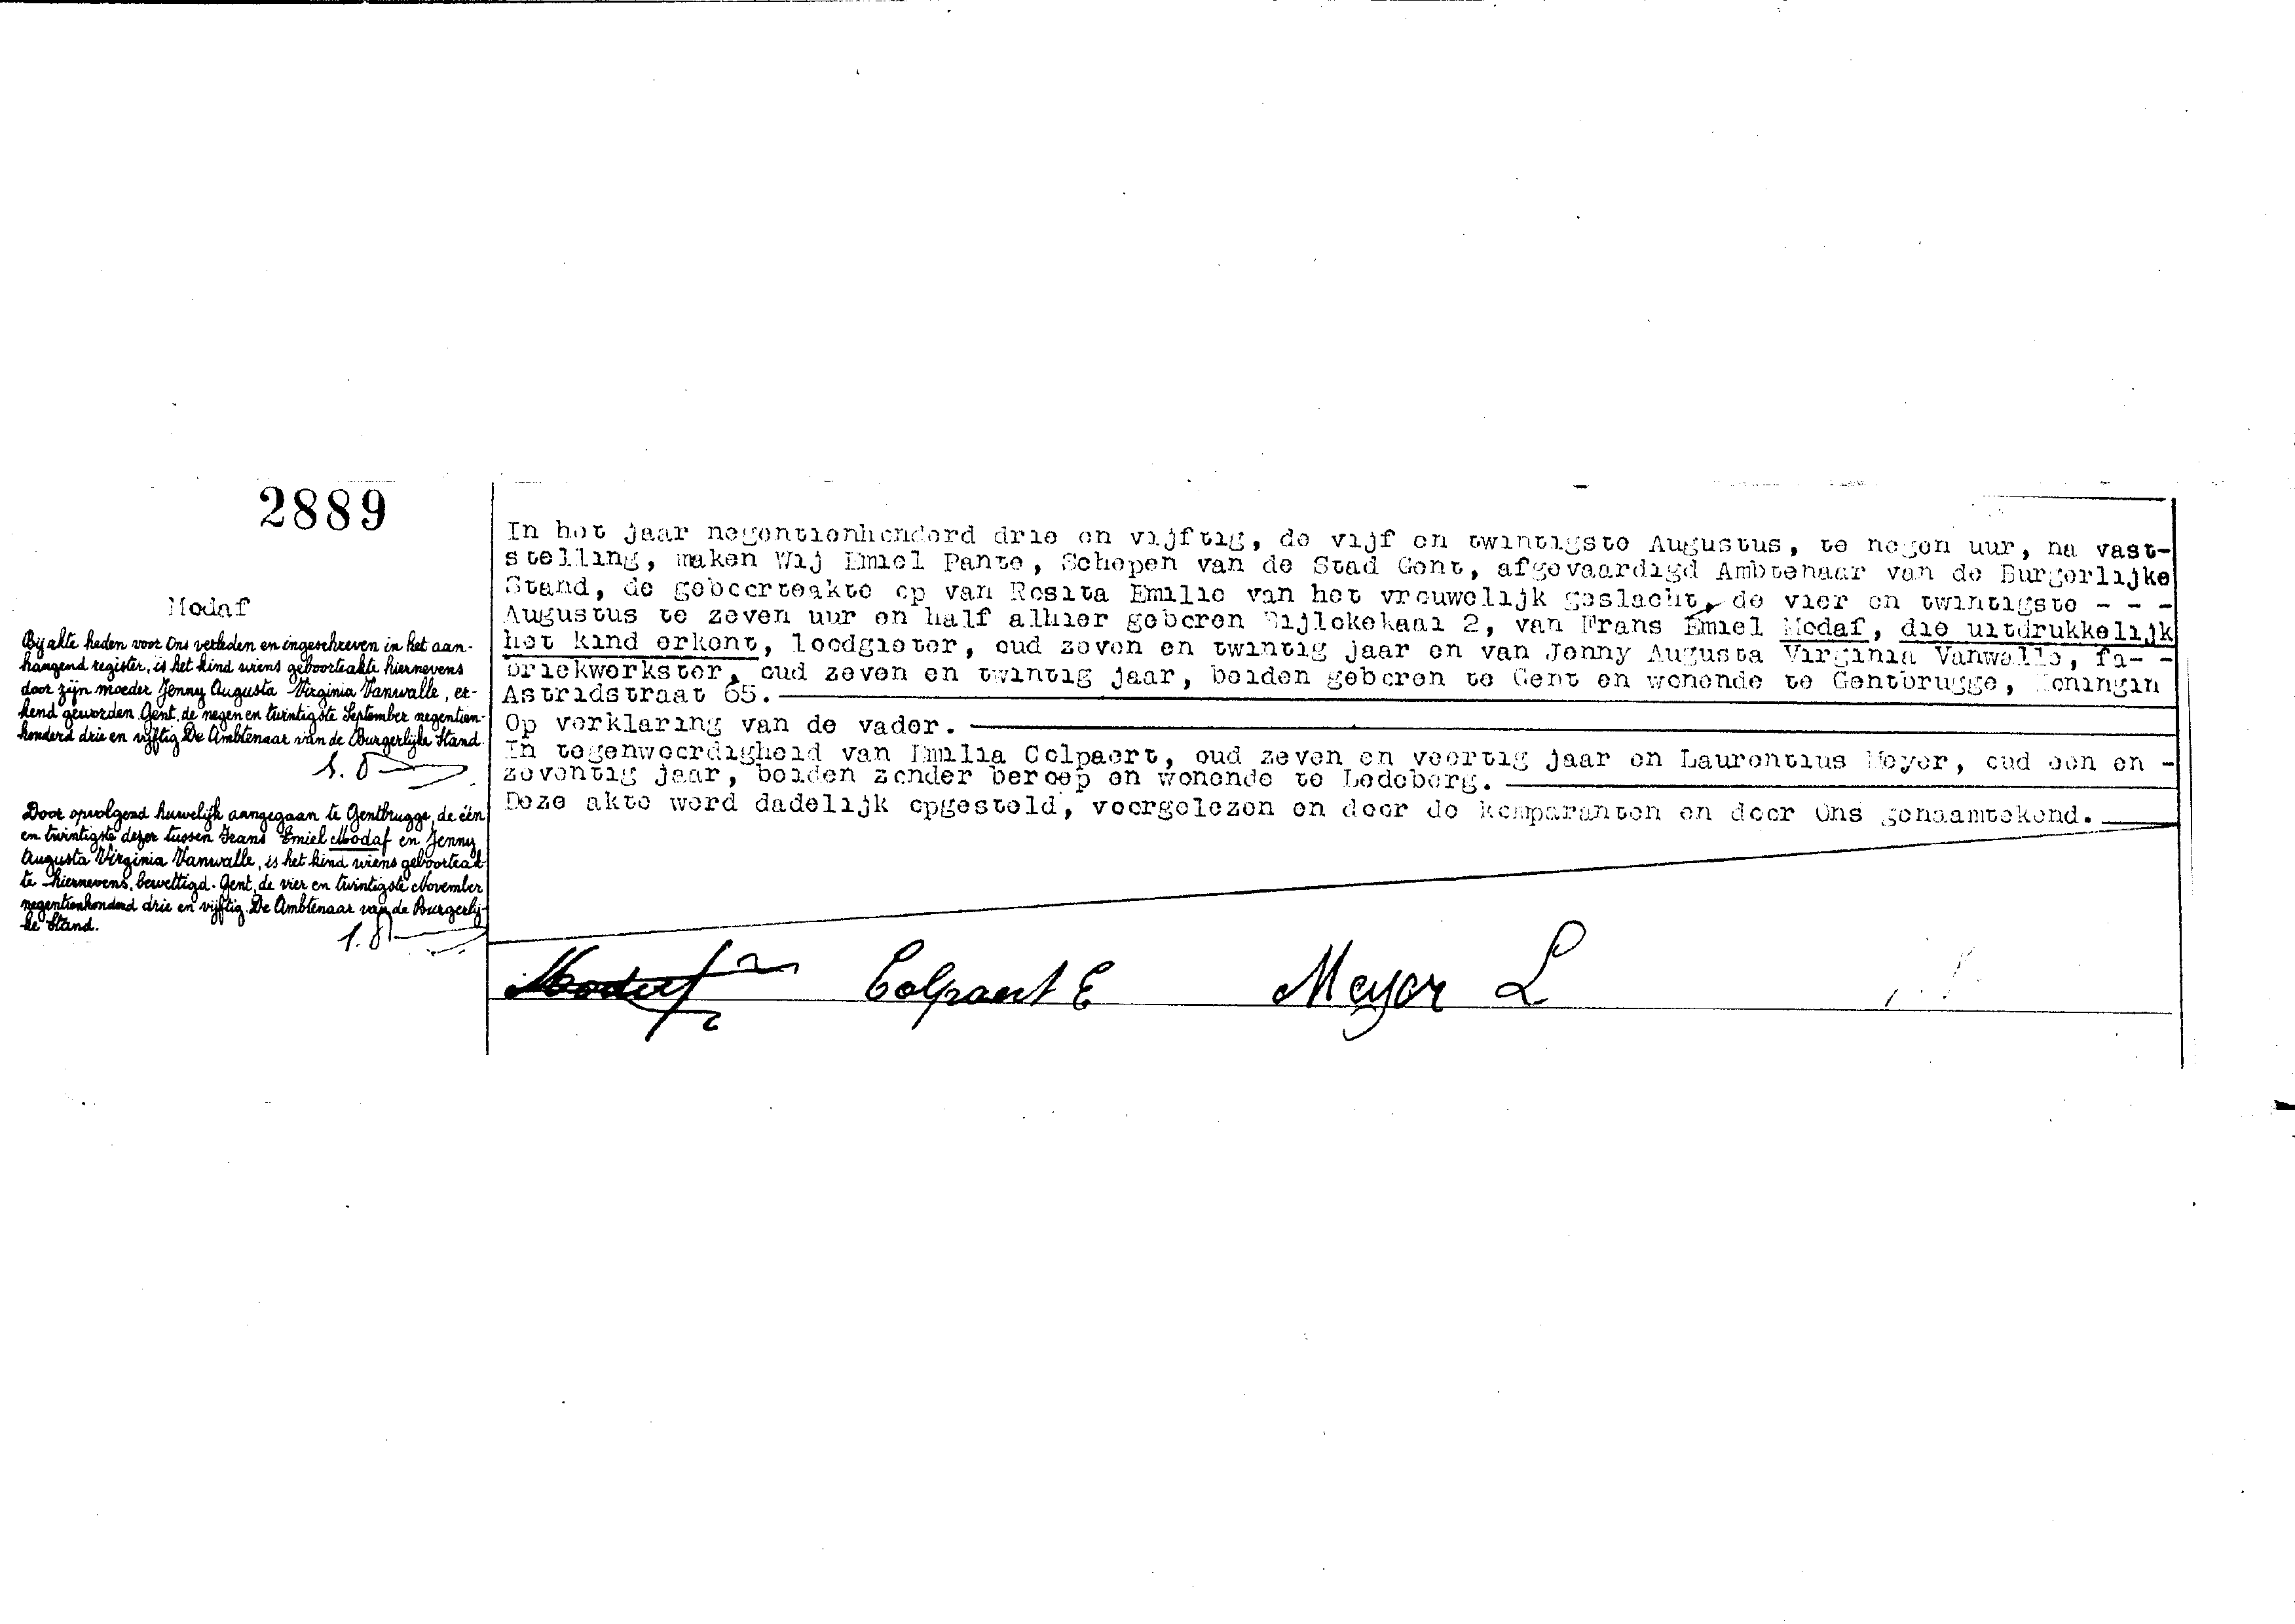 2889
Modaf
Bij akte heden voor Ons verleden en ingeschreven in het aan-
hangend register, is het kind wiens geboorteakte hiernevens
door zijn moeder Jenny Augusta Virginia Vanwalle, er-
kend geworden. Gent, de negen en twintigste September negentien-
honderd drie en vijftig. De Ambtenaar van de Burgerlijke Stand.
Door opvolgend huwelijk aangegaan te Gentbrugge, de één
en twintigste dezer tussen Frans Emiel Modaf en Jenny
Augusta Virginia Vanwalle, is het kind wiens geboorteak-
te hiernevens, bewettigd. Gent, de vier en twintigste November
negentienhonderd drie en vijftig. De Ambtenaar van de Burgerlij-
ke Stand.
In het jaar negentienhonderd drie en vijftig, de vijf en twintigste Augustus, te negen uur, na vast-
stelling, maken Wij Emiel Pante, Schepen van de Stad Gent, afgevaardigd Ambtenaar van de Burgerlijke
Stand, de geboorteakte op van Rosita Emilie van het vrouwelijk geslacht, de vier en twintigste - - -
Augustus te zeven uur en half alhier geboren Bijlokekaai 2, van Frans Emiel Modaf, die uitdrukkelijk
het kind erkent, loodgieter, oud zeven en twintig jaar en van Jenny Augusta Virginia Vanwalle, fa- -
briekwerkster, oud zeven en twintig jaar, beiden geboren te Gent en wonende te Gentbrugge, Koningin
Astridstraat 65.
Op verklaring van de vader.
In tegenwoordigheid van Emilia Colpaert, oud zeven en veertig jaar en Laurentius Meyer, oud een en -
zeventig jaar, beiden zonder beroep en wonende te Ledeberg.
Deze akte werd dadelijk opgesteld, voorgelezen en door de komparanten en door Ons genaamtekend.
Modaf Colpaert E Meyer L